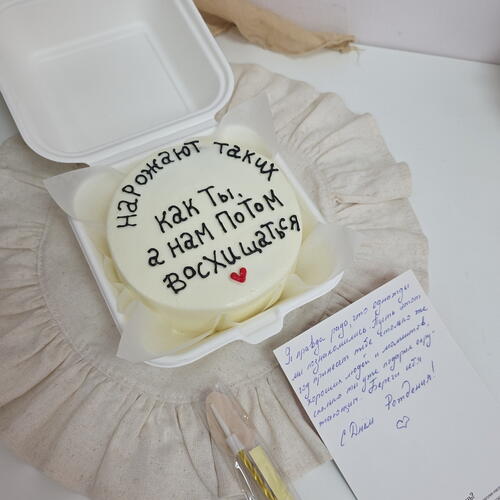 нарожают таких
как ты,
а нам потом
восхищаться
Я правда рада, что однажды
мы познакомились. Пусть этот
год принесёт тебе столько же
хороших людей и моментов,
сколько ты уже подарила окру-
жающим. Береги себя
С Днём Рождения!